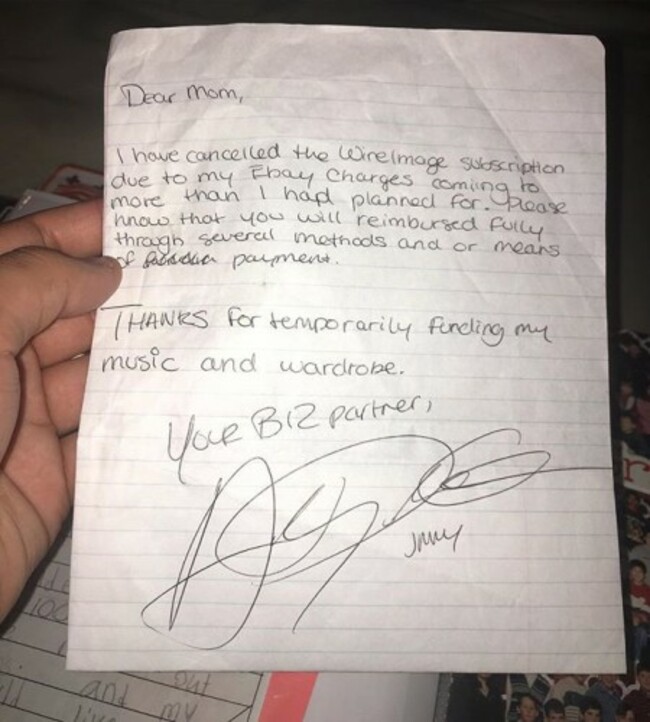 Dear Mom,
I have cancelled the WireImage subscription
due to my Ebay Charges coming to
more than I had planned for. Please
know that you will reimbursed fully
through several methods and or means
of payment.
THANKS for temporarily funding my
music and wardrobe.
Your BIZ partner,
and
out
my